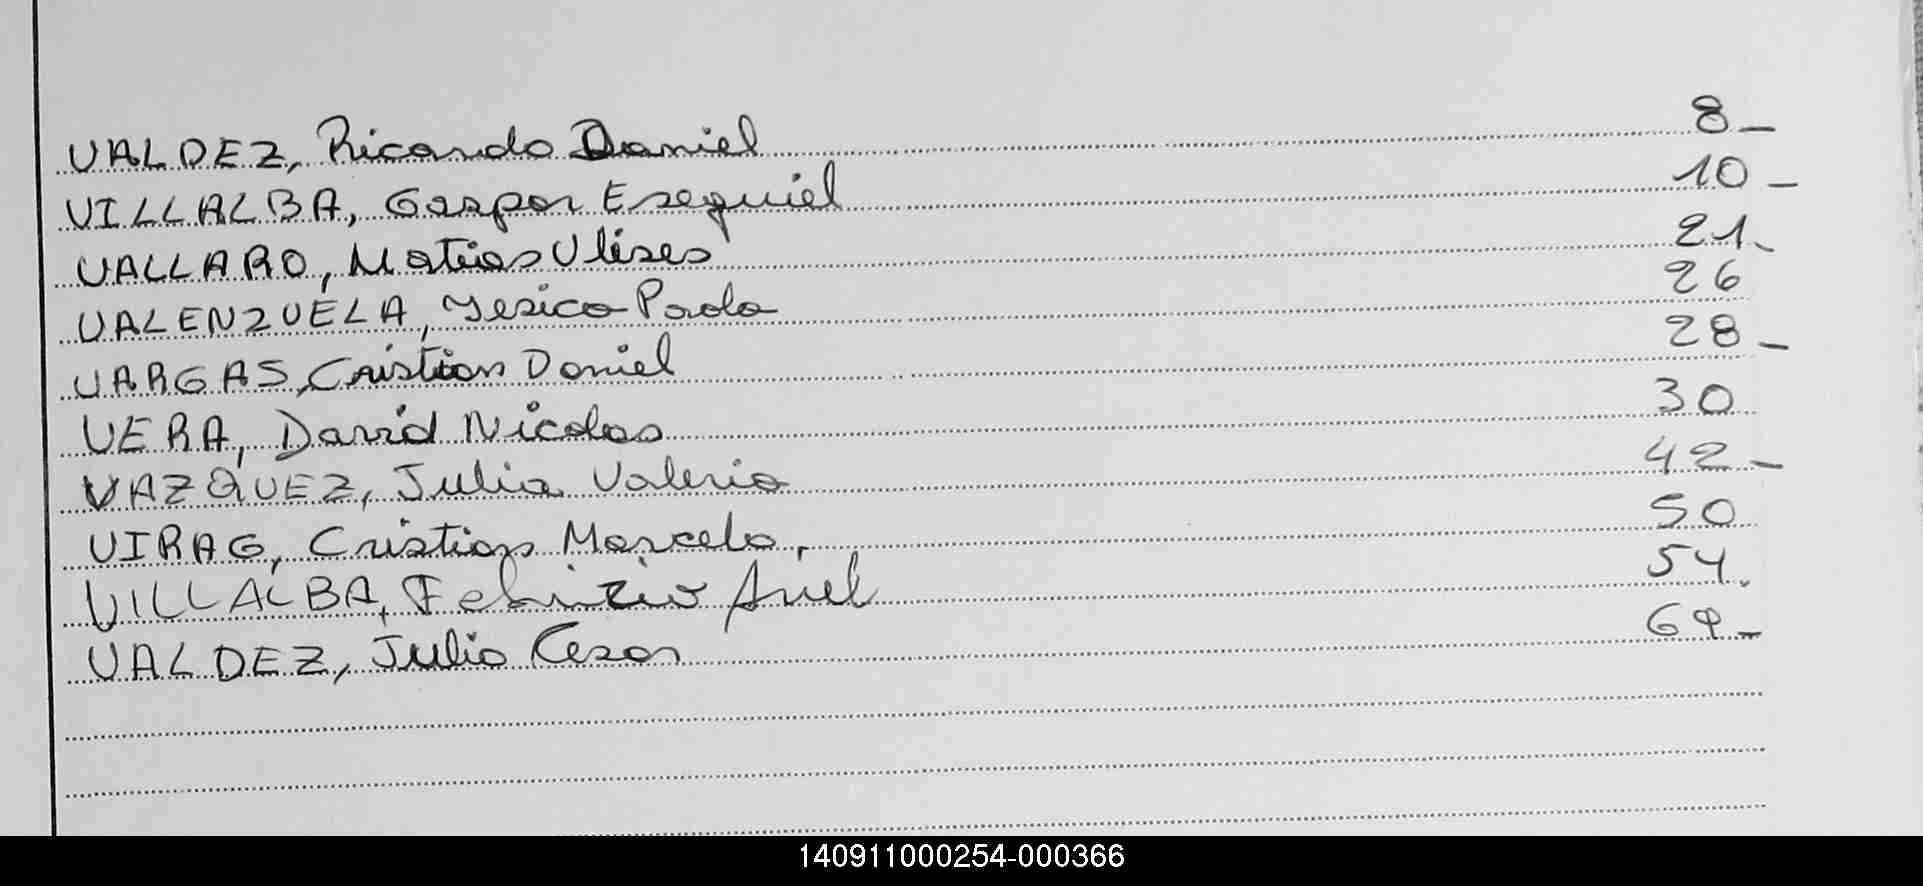 VALDEZ, Ricardo Daniel 8_
VILLALBA, Gaspar Esequiel 10_
VALLARO, Matias Ulises 21_
VALENZUELA, Yesica Paola 26
VARGAS, Cristian Daniel 28_
VERA, David Nicolas 30
VAZQUEZ, Julia Valeria 42_
VIRAG, Cristian Marcelo. 50
VILLALBA, Ariel 54.
VALDEZ, Julio Cesar 69_
140911000254-000366